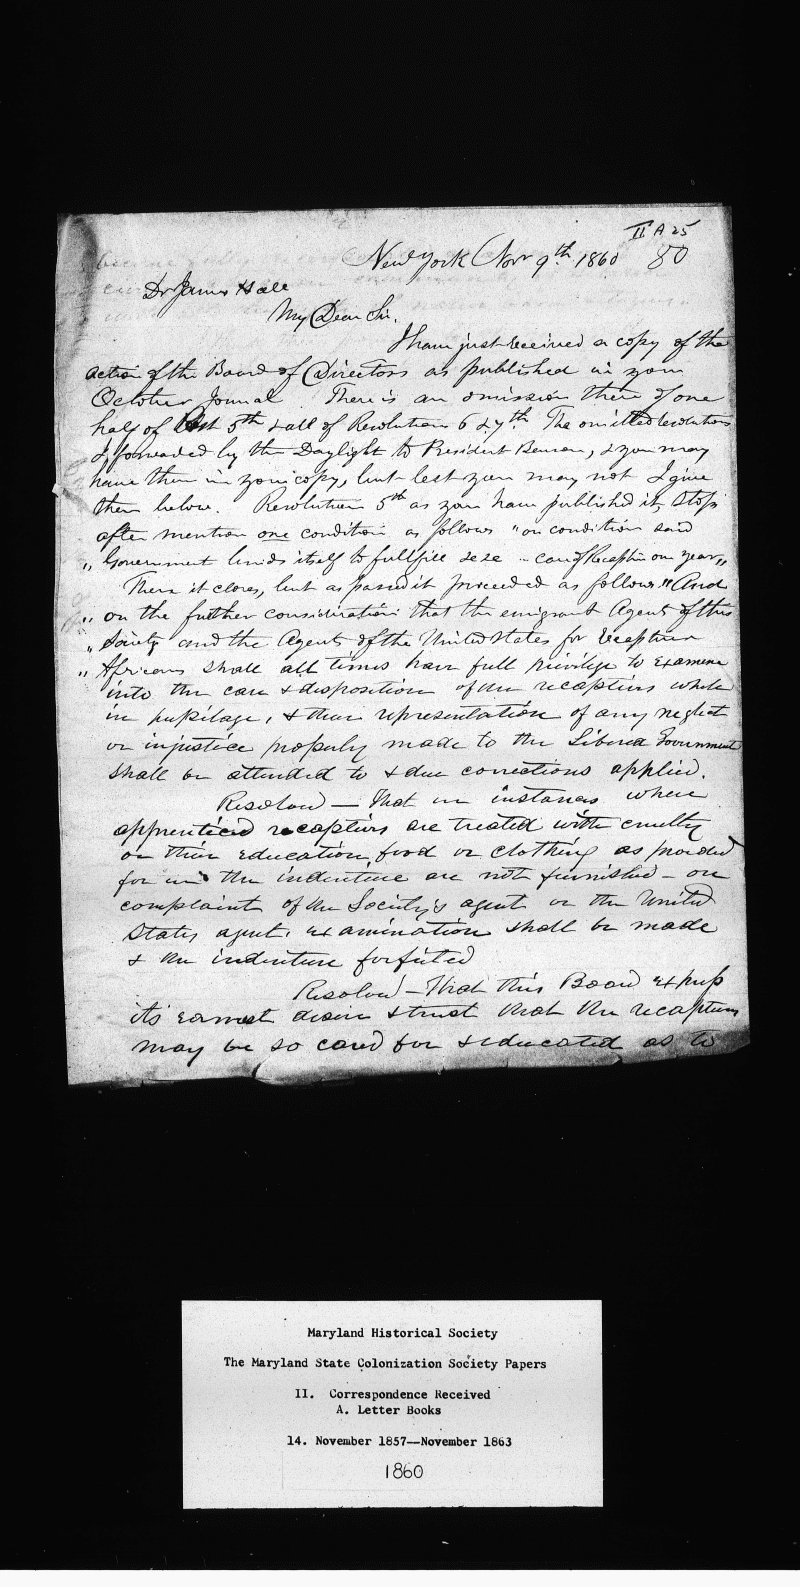 II A 25
New York Nov 9th 1860 80
Dr James Hall
My Dear Sir,
I have just received a copy of the
action of the Board of Directors as published in your
October Journal There is an omission there of one
half of 5th & all of Resolutions 6 & 7th. The omitted resolutions
I forwarded by the Daylight to President Benson, & you may
have them in your copy, but lest you may not I give
them below. Resolution 5th as you have published it, stops
after mention one condition as follows "on condition said
" Government binds itself to fullfill
There it closes, but as passed it proceeded as follows "And
" on the further consideration that the emigrant Agent of this
" Society and the Agent of the United States for recapture
" Africans shall all times have full privilege to examine
into the care & disposition of the recaptives while
in pupilage, & their representation of any neglect
or injustice properly made to the Liberia Government
shall be attended to & due corrections applied.
Resolved — That in instances where
apprenticed recaptives are treated with cruelty
or their education, food or clothing as provided
for in the indenture are not furnished – on
complaint of the Society's agent or the United
States agent, examination shall be made
& the indenture forfeited
Resolved — That this Board express
its earnest desire & trust that the recaptives
may be so cared for & educated as to
Maryland Historical Society
The Maryland State Colonization Society Papers
II. Correspondence Received
A. Letter Books
14. November 1857--November 1863
1860